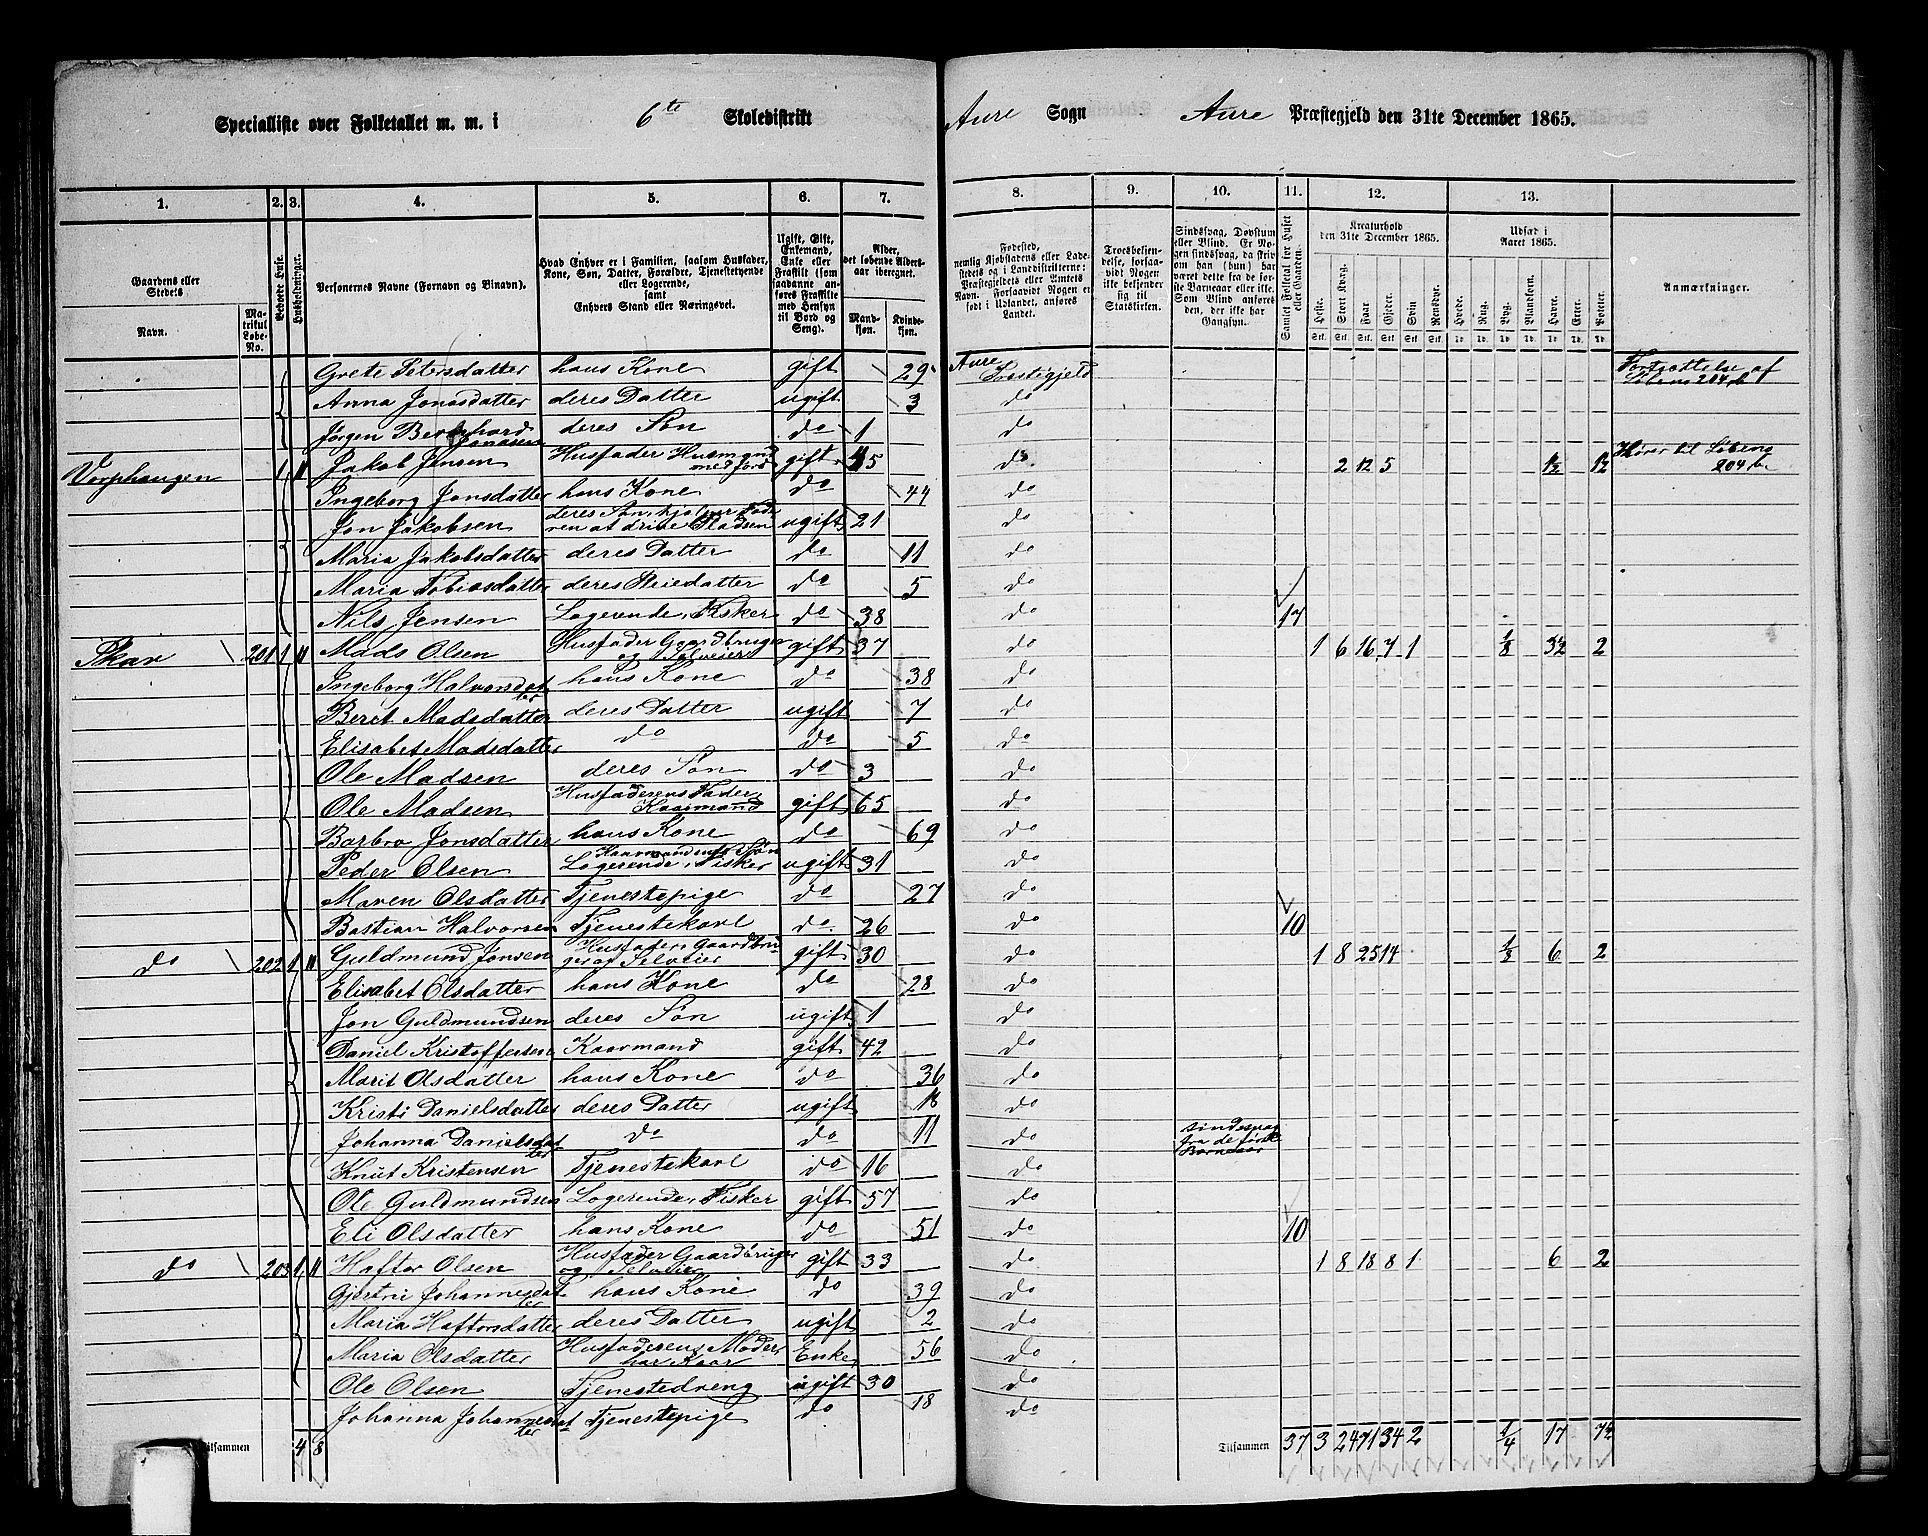 Specialliste over Folketallet m. m. i 6te Skoledistrikt Aure Sogn Aure Præstegjeld den 31te December 1865.
1. 2. 3. 4. 5. 6. 7. 8. 9. 10. 11. 12. 13.
Gaardens eller Stedets
Navn.
Matrikul Løbe-No.
Beboede Huse.
Husholdninger.
Personernes Navne (Fornavn og Binavn).
Hvad Enhver er i Familien, saasom Husfader, Kone, Søn, Datter, Forældre, Tjenestetyende eller Logerende, samt Enhvers Stand eller Næringsvei.
Ugift, Gift, Enkemand, Enke eller Fraskilt (som saadanne anføres Fraskilte med Hensyn til Bord og Seng).
Alder, det løbende Aldersaar iberegnet.
Mandkjøn. Kvindekjøn.
Fødested, nemlig Kjøbstadens eller Ladestedets og i Landdistrikterne: Præstegjeldets eller Amtets Navn. Forsaavidt Nogen er født i Udlandet, anføres Landet.
Troesbekjendelse, forsaavidt Nogen ikke bekjender sig til Statskirken.
Sindssvag, Døvstum eller Blind. Er Nogen sindssvag, da skrives om han (hun) har været dette fra de første Barneaar eller ikke. Som Blind anføres den, der ikke har Gangsyn.
Samlet Folketal for Huset eller Gaarden.
Kreaturhold den 31te December 1865.
Heste. Stort Kvæg. Faar. Gjeder. Svin. Rensdyr.
Udsæd i Aaret 1865.
Hvede. Rug. Byg. Blandkorn. Havre. Erter. Poteter.
Anmærkninger.
Grete Petersdatter hans Kone gift 29 Aure Præstegjeld Fortsættelse af Løbens 204 b
Anna Jonasdatter deres Datter ugift 3 do
Jørgen Bernhard Jonasen deres Søn do 1 do
Vorphaugen 1 1 Jakob Jensen Husfader Husmand med Jord gift 45 do 2 12 5 1½ 1½ Hører til Løbens 204 b.
Ingeborg Jonsdatter hans Kone do 44 do
Jon Jakobsen deres Søn, hjelper Faderen at drive Pladsen ugift 21 do
Maria Jakobsdatter deres Datter do 11 do
Maria Tobiasdatter deres Pleiedatter do 5 do
Nils Jensen Logerende, Fisker do 38 do 17
Skar 201 1 1 Mads Olsen Husfader Gaardbruger og Selveier gift 37 do 1 6 16 7 1 1/8 3½ 2
Ingeborg Halvorsdatter hans Kone do 38 do
Berit Madsdatter deres Datter ugift 7 do
Elisabet Madsdatter do do 5 do
Ole Madsen deres Søn do 3 do
Ole Madsen Husfaderens Fader, Kaarmand gift 65 do
Barbro Jonsdatter hans Kone do 69 do
Peder Olsen Kaarmandens Søn Logerende, Fisker ugift 31 do
Maren Olsdatter Tjenestepige do 27 do
Bastian Halvorsen Tjenestekarl do 26 do 10
do 202 1 1 Guldmund Jonsen Husfader, Gaardbruger og Selveier gift 30 do 1 8 25 14 1/8 6 2
Elisabet Olsdatter hans Kone do 28 do
Jon Guldmundsen deres Søn ugift 1 do
Daniel Kristoffersen Kaarmand gift 42 do
Marit Olsdatter hans Kone do 36 do
Kristi Danielsdatter deres Datter ugift 18 do
Johanna Danielsdatter do do 11 do sindssvag fra de første Barneaar
Knut Kristensen Tjenestekarl do 16 do
Ole Guldmundsen Logerende, Fisker gift 57 do
Eli Olsdatter hans Kone do 51 do 10
do 203 1 1 Haftor Olsen Husfader Gaardbruger og Selveier gift 33 do 1 8 18 8 1 6 2
Gjertru Johannesdatter hans Kone do 39 do
Maria Haftorsdatter deres Datter ugift 2 do
Maria Olsdatter Husfaderens Moder, har Kaar Enke 56 do
Ole Olsen Tjenestedreng ugift 30 do
Johanna Johannesdatter Tjenestepige do 18 do
Tilsammen 4 8 Tilsammen 37 3 24 71 34 2 1/4 17 7½